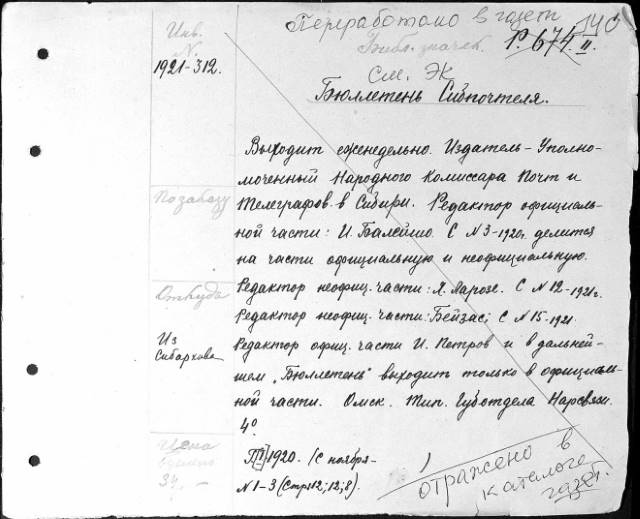 Переработано в газет
140
Инв.
N.
1921-312.
Библ. значек.
Р. 674 II.
См. ЭК
Бюллетень Сибпочтеля.
Выходит еженедельно. Издатель - Уполно-
моченный Народного Комиссара Почт и
Телеграфов в Сибири. Редактор официаль-
ной части: И. Балейшо. С N 3-1920г. делится
на части официальную и неофициальную.
Редактор неофиц. части: Я. Ларозе. С N 12-1921г.
Редактор неофиц. части: Бейзас; С N 15-1921
Редактор офиц. части И. Петров и в дальней-
шем „Бюллетень" выходит только в официаль-
ной части. Омск. Тип. Губотдела Нарсвязи.
4°
Откуда
Из
Сибархива
Цена
1920. (С ноября-)
N 1-3 (Стр. 12; 12; 8).
отражено в
каталоге
газет.